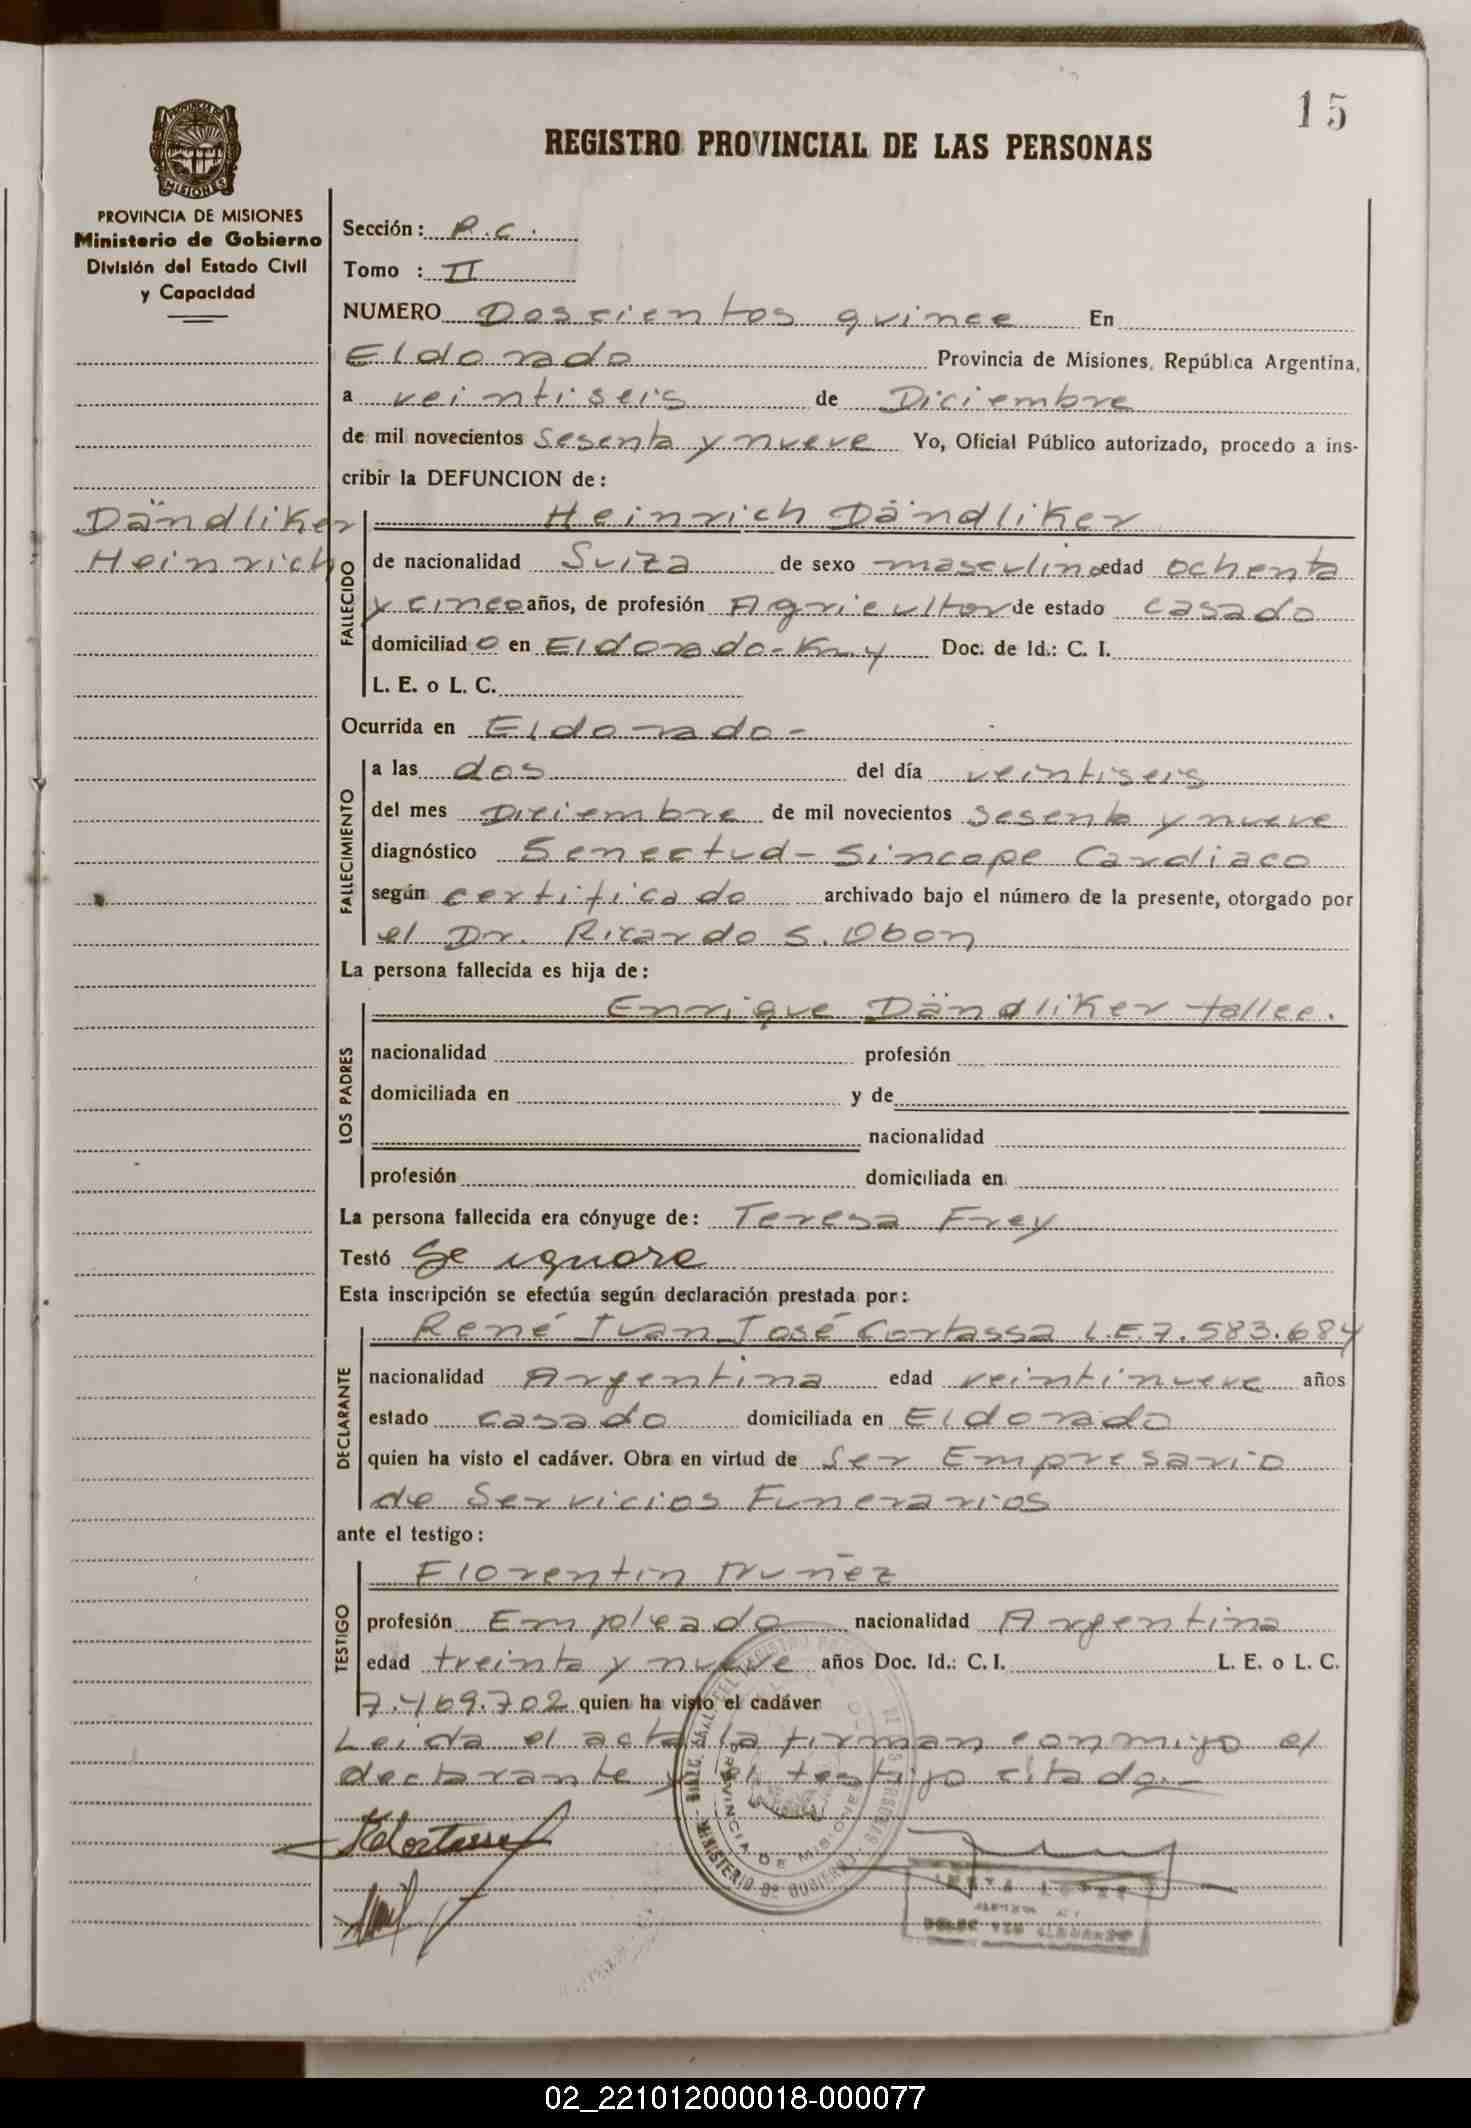 15
REGISTRO PROVINCIAL DE LAS PERSONAS
PROVINCIA DE MISIONES
MISIONES
PROVINCIA DE MISIONES
Ministerio de Gobierno
División del Estado Civil
y Capacidad
Sección: R.C.
Tomo : II
NUMERO Doscientos quince En
Eldorado Provincia de Misiones, República Argentina,
a veintiseis de Diciembre
de mil novecientos Sesenta y nueve Yo, Oficial Público autorizado, procedo a ins-
cribir la DEFUNCION de:
Dändliker
Heinrich
FALLECIDO
Heinrich Dändliker
de nacionalidad Suiza de sexo masculino edad ochenta
y cinco años, de profesión Agricultor de estado casado
domiciliado en Eldorado-Km.4 Doc. de Id.: C. I.
L. E. o L. C.
Ocurrida en Eldorado-
FALLECIMIENTO
a las dos del día veintiseis
del mes Diciembre de mil novecientos Sesenta y nueve
diagnóstico Senectud- Sincope Cardiaco
según certificado archivado bajo el número de la presente, otorgado por
el Dr. Ricardo S. Obon
La persona fallecida es hija de:
LOS PADRES
Enrique Dändliker fallec.
nacionalidad profesión
domiciliada en y de
nacionalidad
profesión domiciliada en
La persona fallecida era cónyuge de: Teresa Frey
Testó Se ignora
Esta inscripción se efectúa según declaración prestada por:
DECLARANTE
René Ivan José Cortassa L.E.7.583.684
nacionalidad Argentina edad veintinueve años
estado casado domiciliada en Eldorado
quien ha visto el cadáver. Obra en virtud de Ser Empresario
de Servicios Funerarios
ante el testigo:
TESTIGO
Florentin Nuñez
profesión Empleado nacionalidad Argentina
edad treinta y nueve años Doc. Id.: C. I. L. E. o L. C.
7.469.702 quien ha visto el cadáver
Leida el acta la firman conmigo el
declarante y el testigo citado.-
PROVINCIA DE MISIONES
MINISTERIO DE GOBIERNO
02_221012000018-000077